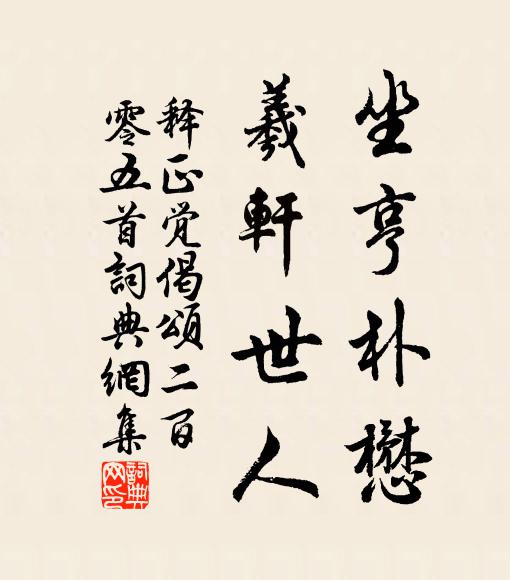 坐亨朴懋
羲軒世人
释正觉偈頌二百
零五首詞典網集
詞典网印